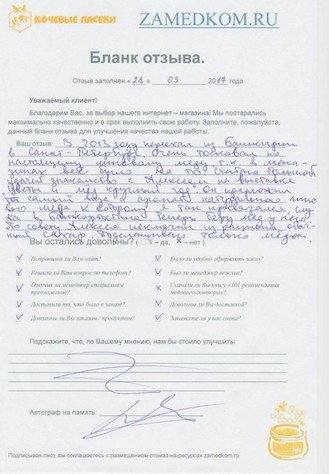 КОЧЕВЫЕ ПАСЕКИ
ZAMEDKOM.RU
Бланк отзыва.
Отзыв заполнен «21» 09 2017 года
Уважаемый клиент!
Благодарим Вас, за выбор нашего интернет – магазина! Мы постарались
максимально качественно и в срок выполнить свою работу. Заполните, пожалуйста,
данный бланк отзыва для улучшения качества нашей работы.
Ваш отзыв: В 2013 году переехал из Башкирии
в Санкт-Петербург. Очень тосковал по
настоящему липовому меду, т.к. в мага-
зинах всё не то. Считаю большой
удачей знакомство с Алексеем на выставке
Цветы и мёд круглый год. Он предложил
самый натуральный липо-
вый меда, к которому я так
в Башкортостане. Теперь беру мёд у него.
По совету Алексея исключил из рациона обыч-
ный сахар. Подслащиваю только мёдом.
Вы остались довольны? (V – да, × – нет )
Понравился ли Вам сайт?
Было ли удобно оформлять заказ?
Решили ли Ваш вопрос по телефону?
Был ли менеджер вежлив?
Озвучил ли менеджер специальное предложение?
Скачали ли Вы книгу «101 рекомендация медового доктора»?
Доставили то, что было в заказе?
Довольны ли Вы доставкой?
Довольны ли Вы заказом / продуктом?
Закажете ли у нас снова?
Подскажите, что, по Вашему мнению, нам бы стоило улучшить:
Автограф на память:
Подписывая лист, вы соглашаетесь с размещением отзыва на ресурсах zamedkom.ru